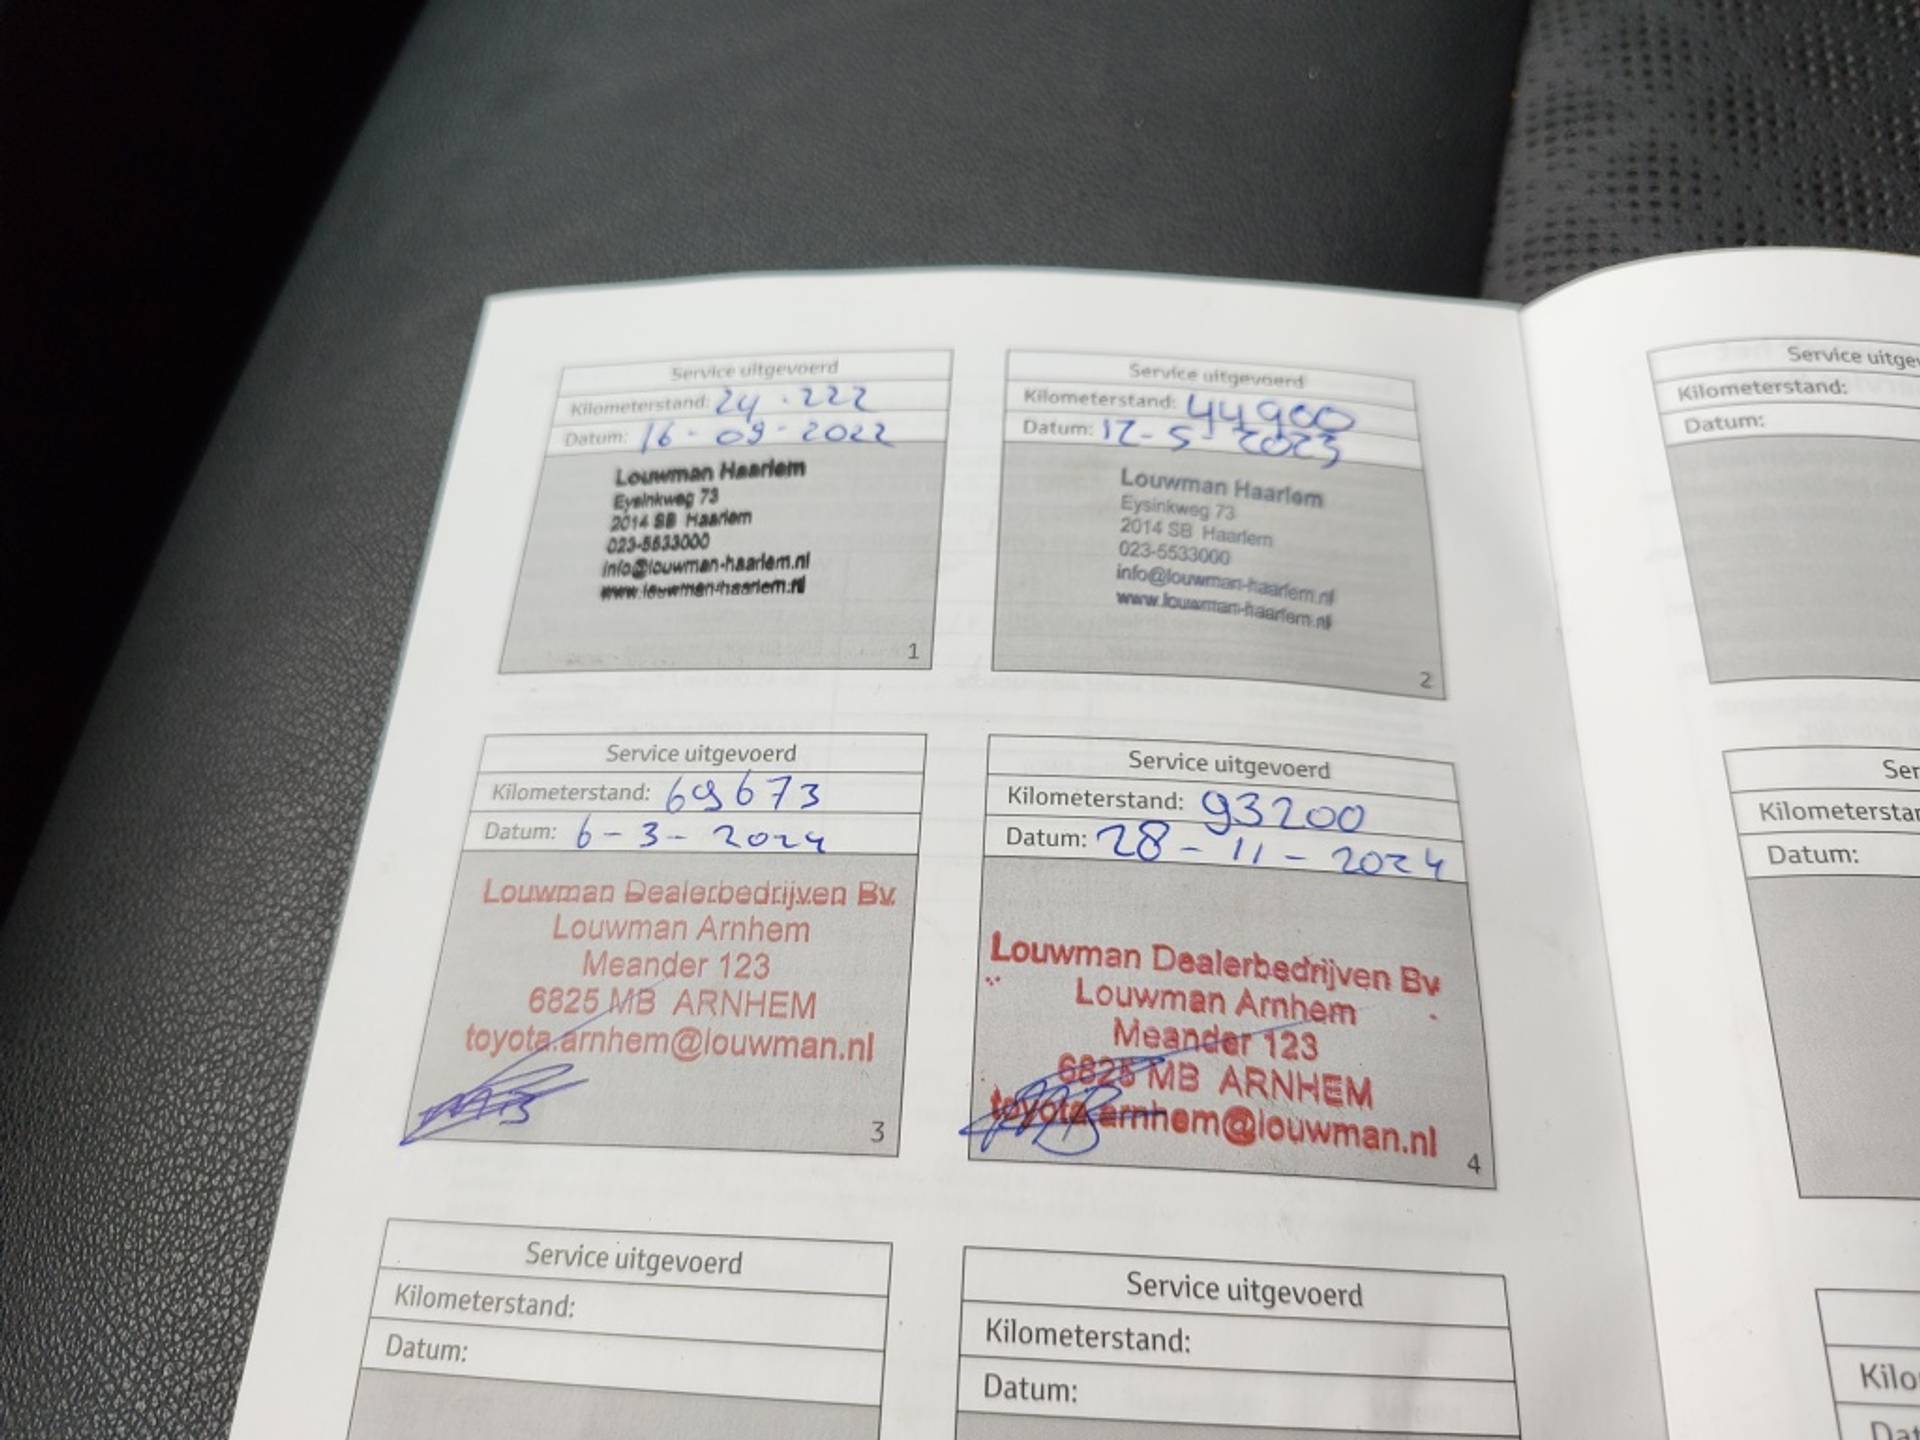 Service uitgevoerd
Kilometerstand: 24.222
Datum: 16-09-2022
Louwman Haarlem
Eysinkweg 73
2014 SB Haarlem
023-5533000
info@louwman-haarlem.nl
www.louwman-haarlem.nl
1
Service uitgevoerd
Kilometerstand: 44900
Datum: 12-5-2023
Louwman Haarlem
Eysinkweg 73
2014 SB Haarlem
023-5533000
info@louwman-haarlem.nl
www.louwman-haarlem.nl
2
Service uitgevoerd
Kilometerstand: 69673
Datum: 6-3-2024
Louwman Dealerbedrijven Bv
Louwman Arnhem
Meander 123
6825 MB ARNHEM
toyota.arnhem@louwman.nl
3
Service uitgevoerd
Kilometerstand: 93200
Datum: 28-11-2024
Louwman Dealerbedrijven Bv
Louwman Arnhem
Meander 123
6825 MB ARNHEM
toyota.arnhem@louwman.nl
4
Service uitgevoerd
Kilometerstand:
Datum:
Service uitgevoerd
Kilometerstand:
Datum:
Service uitge
Kilometerstand:
Datum:
Ser
Kilometerstar
Datum:
Kilo
Dat